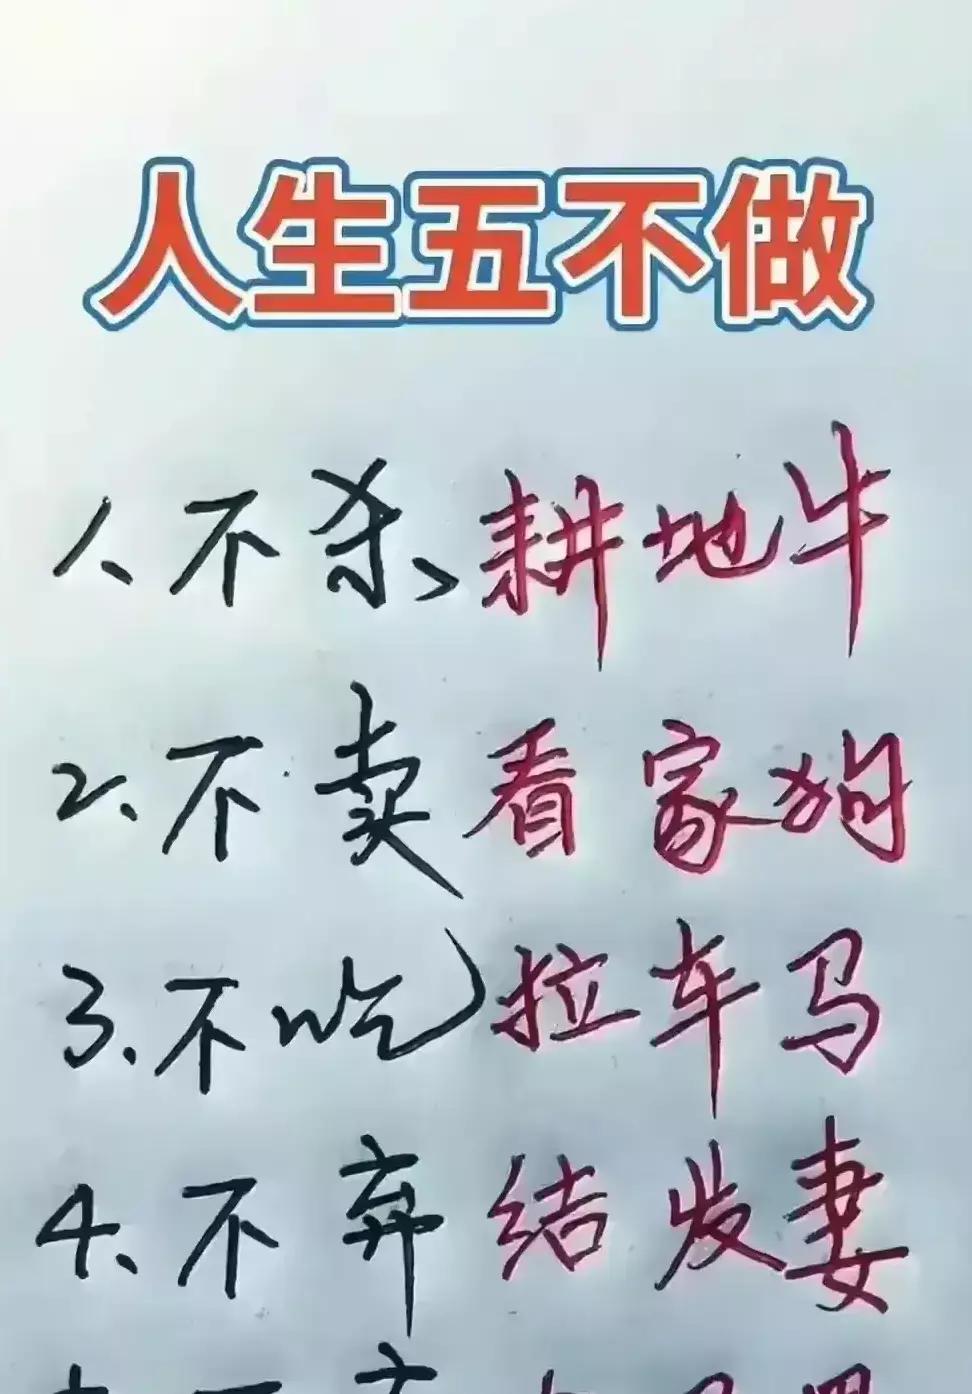 人生五不做
1、不杀、耕地牛
2、不卖看家狗
3、不吃拉车马
4、不弃结发妻